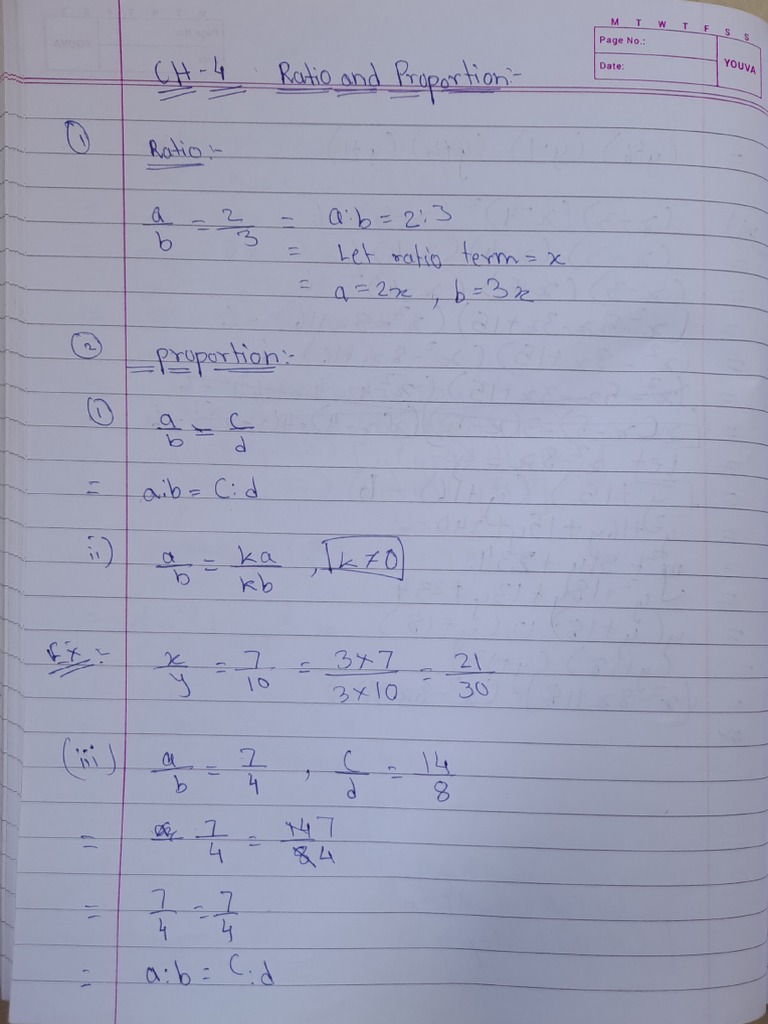 M T W T F S S
Page No.:
Date:
YOUVA
CH-4 Ratio and Proportion:-
① Ratio:-
a/b = 2/3 = a:b = 2:3
= Let ratio term = x
= a = 2x , b = 3x
② proportion:-
① a/b = C/d
= a:b = C:d
ii) a/b = ka/kb , k ≠ 0
Ex:- x/y = 7/10 = 3×7/3×10 = 21/30
(iii) a/b = 7/4 , C/d = 14/8
= 7/4 = 14 7/8 4
= 7/4 = 7/4
= a:b = C:d